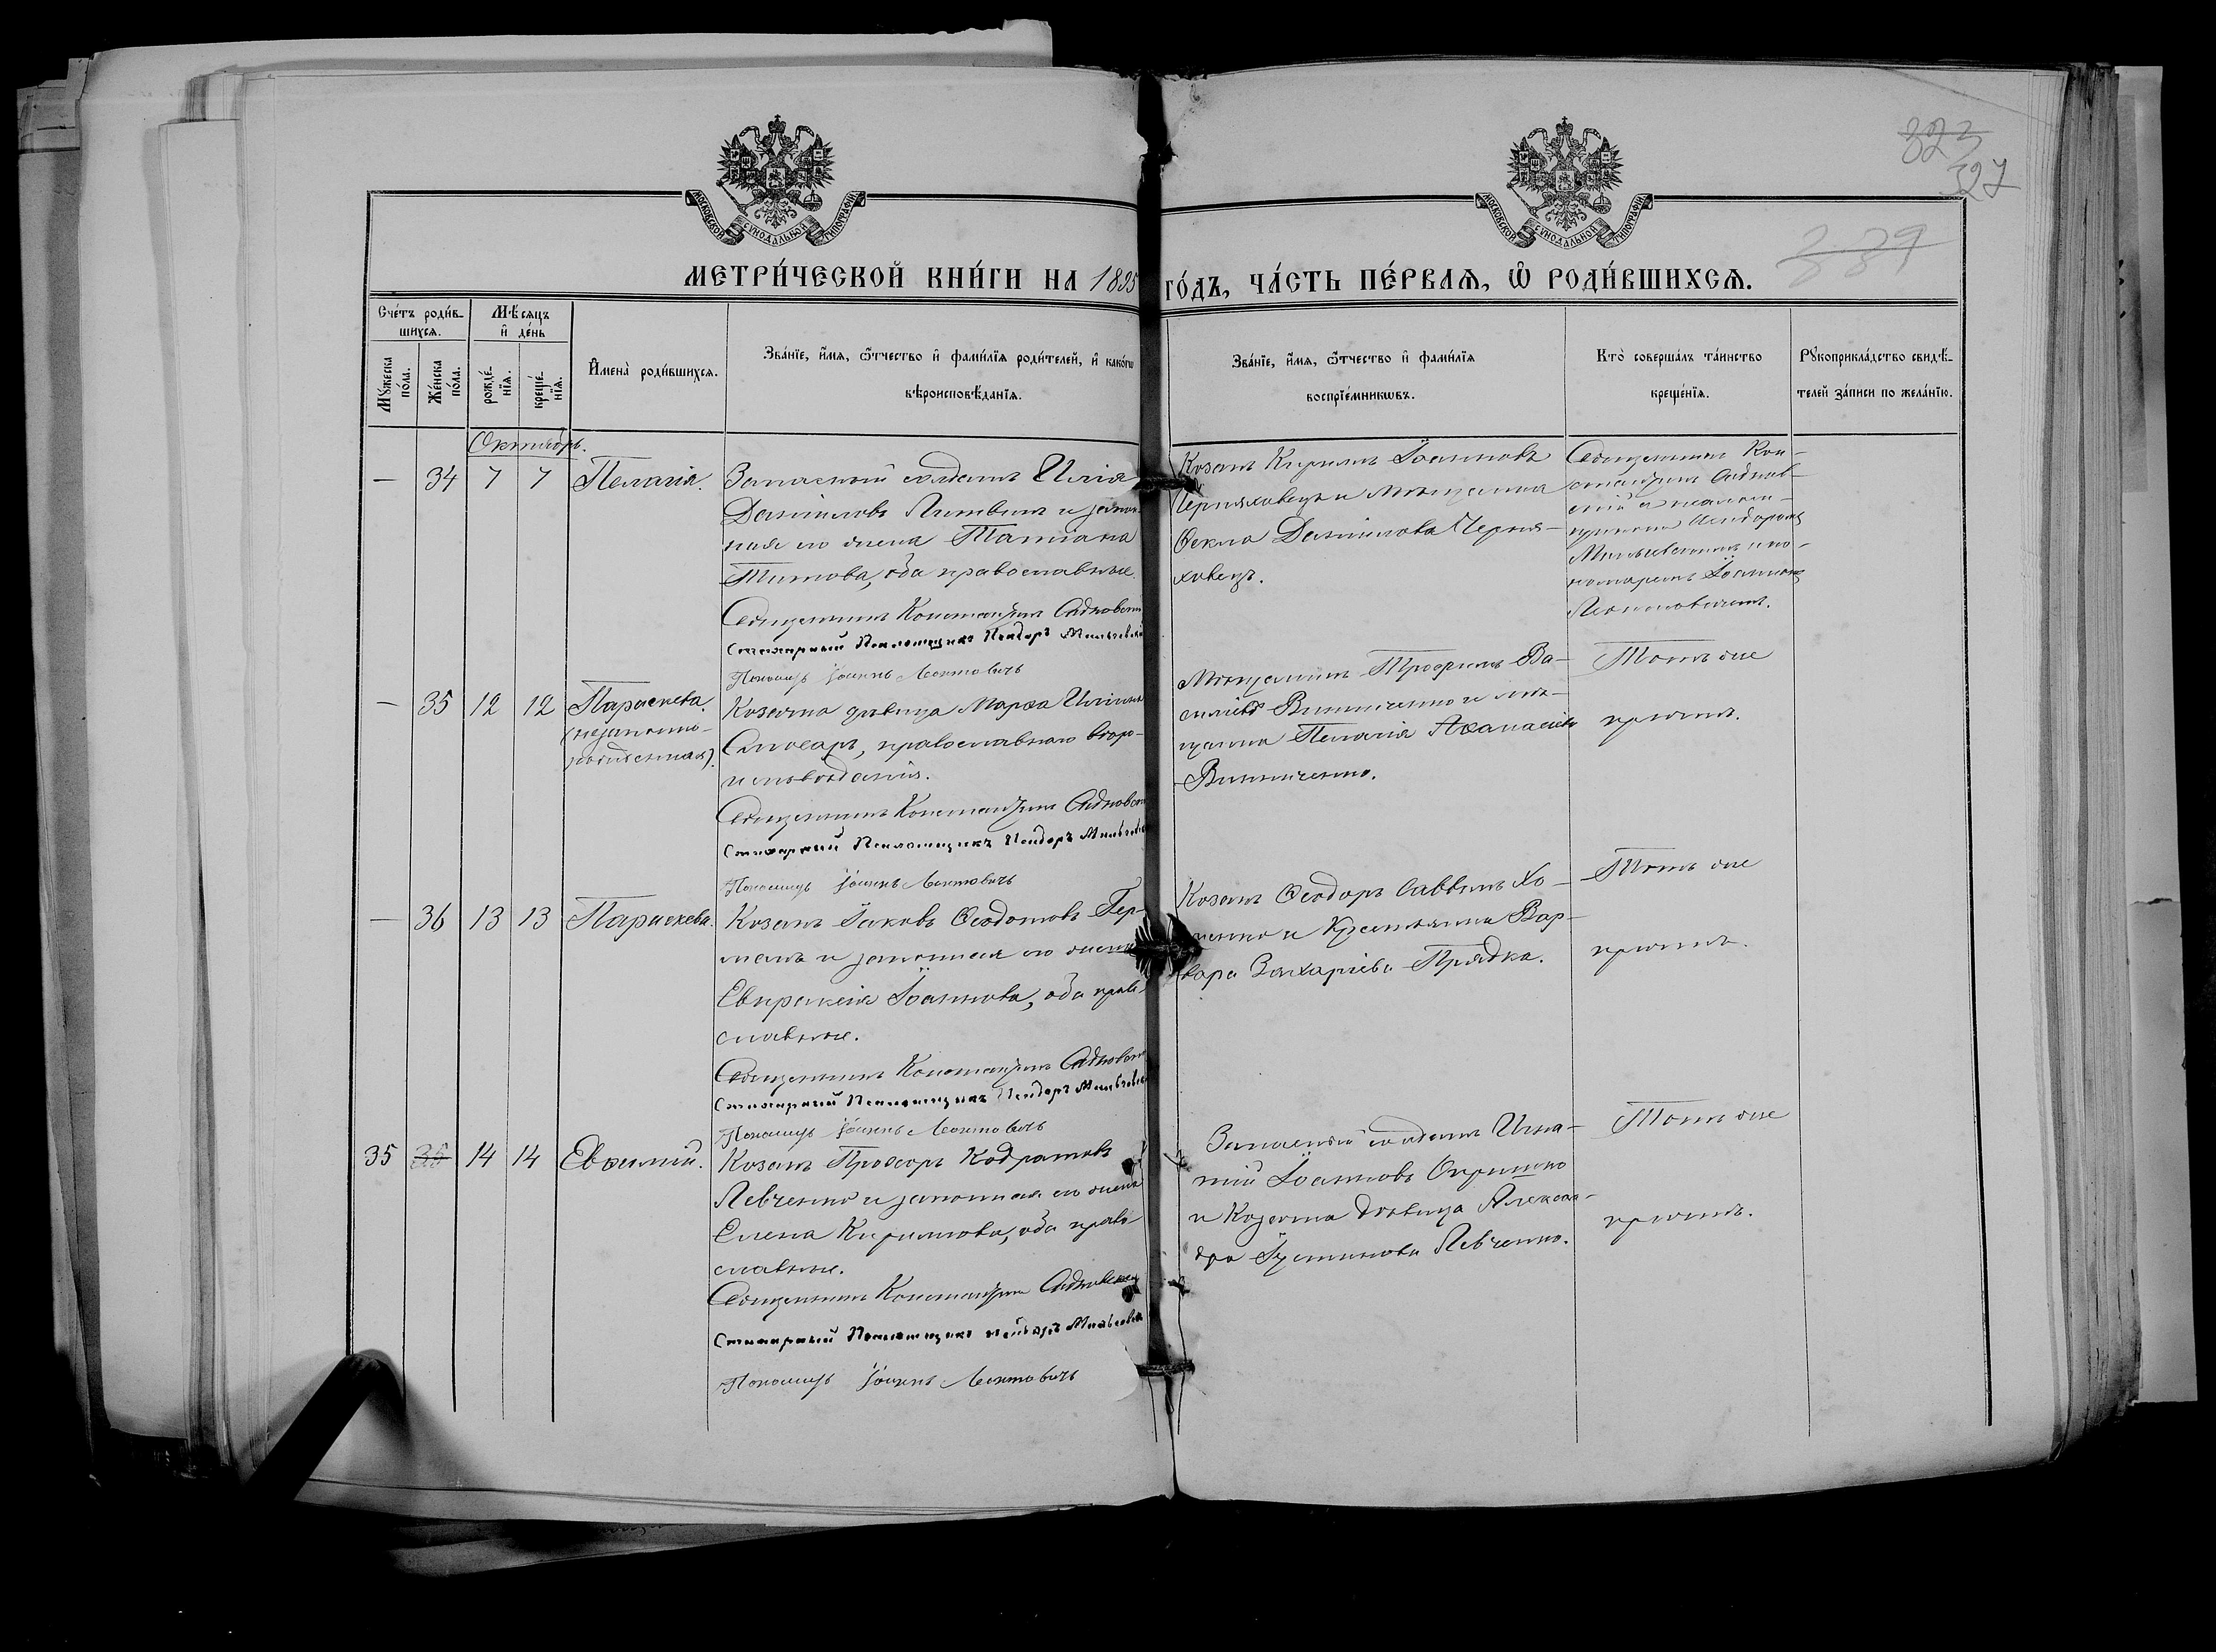 823
327
339
МОСКОВСКОЙ СѴНОДАЛЬНОЙ ТИПОГРАФІИ
МОСКОВСКОЙ СѴНОДАЛЬНОЙ ТИПОГРАФІИ
МЕТРИ́ЧЕСКОЙ КНИ́ГИ НА 1895 ГО́ДЪ, ЧА́СТЬ ПЕ́РВАѦ, Ѽ РОДИ́ВШИХСѦ.
Сче́тъ роди́в-
шихсѧ.
Мꙋ́жеска по́ла.
Же́нска по́ла.
Мѣ́сѧцъ
и҆ де́нь
рожде́-
нїѧ.
креще́-
нїѧ.
И҆мена̀ роди́вшихсѧ.
Зва́нїе, и҆́мѧ, ѻ҆́тчество и҆ фами́лїѧ роди́телей, и҆ како́гѡ
вѣроисповѣ́данїѧ.
Зва́нїе, и҆́мѧ, ѻ҆́тчество и҆ фами́лїѧ
воспрїе́мникѡвъ.
Кто̀ соверша́лъ та́инство
креще́нїѧ.
Рꙋкоприкла́дство свидѣ́-
телей за́писи по жела́нїю.
Октябрь.
— 34 7 7 Пелагія.
Запасный солдатъ Илія
Даніиловъ Литвинъ и закон-
ная его жена Татіана
Титова, оба православные.
Священникъ Константинъ Садковскій
Стихарный Псаломщикъ Исидоръ
Пономарь Іоаннъ Леонтовичъ
Козакъ Кириллъ Іоанновъ
Черняховецъ и мѣщанка
Ѳекла Даніилова Черня-
ховецъ.
Священникъ Кон-
стантинъ Садков-
скій съ псалом-
щикомъ Исидоромъ
и по-
номаремъ Іоанномъ
Леонтовичемъ.
— 35 12 12 Параскева.
(незаконно-
рожденная).
Козачка дѣвица Марѳа Иліина
Слюсарь, православнаго вѣро-
исповѣданія.
Священникъ Константинъ Садковскій
Стихарный Псаломщикъ Исидоръ
Пономарь Іоаннъ Леонтовичъ
Мѣщанинъ Трофимъ Ва-
силіевъ Винниченко и мѣ-
щанка Пелагія Аѳанасіева
Винниченко.
Тотъ же
причтъ.
— 36 13 13 Параскева.
Козакъ Іаковъ Ѳеодотовъ Гер-
манъ и законная его жена
Евпраксія Іоаннова, оба право-
славные.
Священникъ Константинъ Садковскій
Стихарный Псаломщикъ Исидоръ
Пономарь Іоаннъ Леонтовичъ
Козакъ Ѳеодоръ Саввинъ Хо-
менко и Крестьянка Вар-
вара Захаріева Прядка.
Тотъ же
причтъ.
35 35 14 14 Евѳимій.
Козакъ Прохоръ Кодратовъ
Левченко и законная его жена
Елена Кириллова, оба право-
славные.
Священникъ Константинъ Садковскій
Стихарный Псаломщикъ Исидоръ
Пономарь Іоаннъ Леонтовичъ
Запасный солдатъ Игна-
тій Іоанновъ
и Козачка дѣвица Алексан-
дра Іустинова Левченко.
Тотъ же
причтъ.